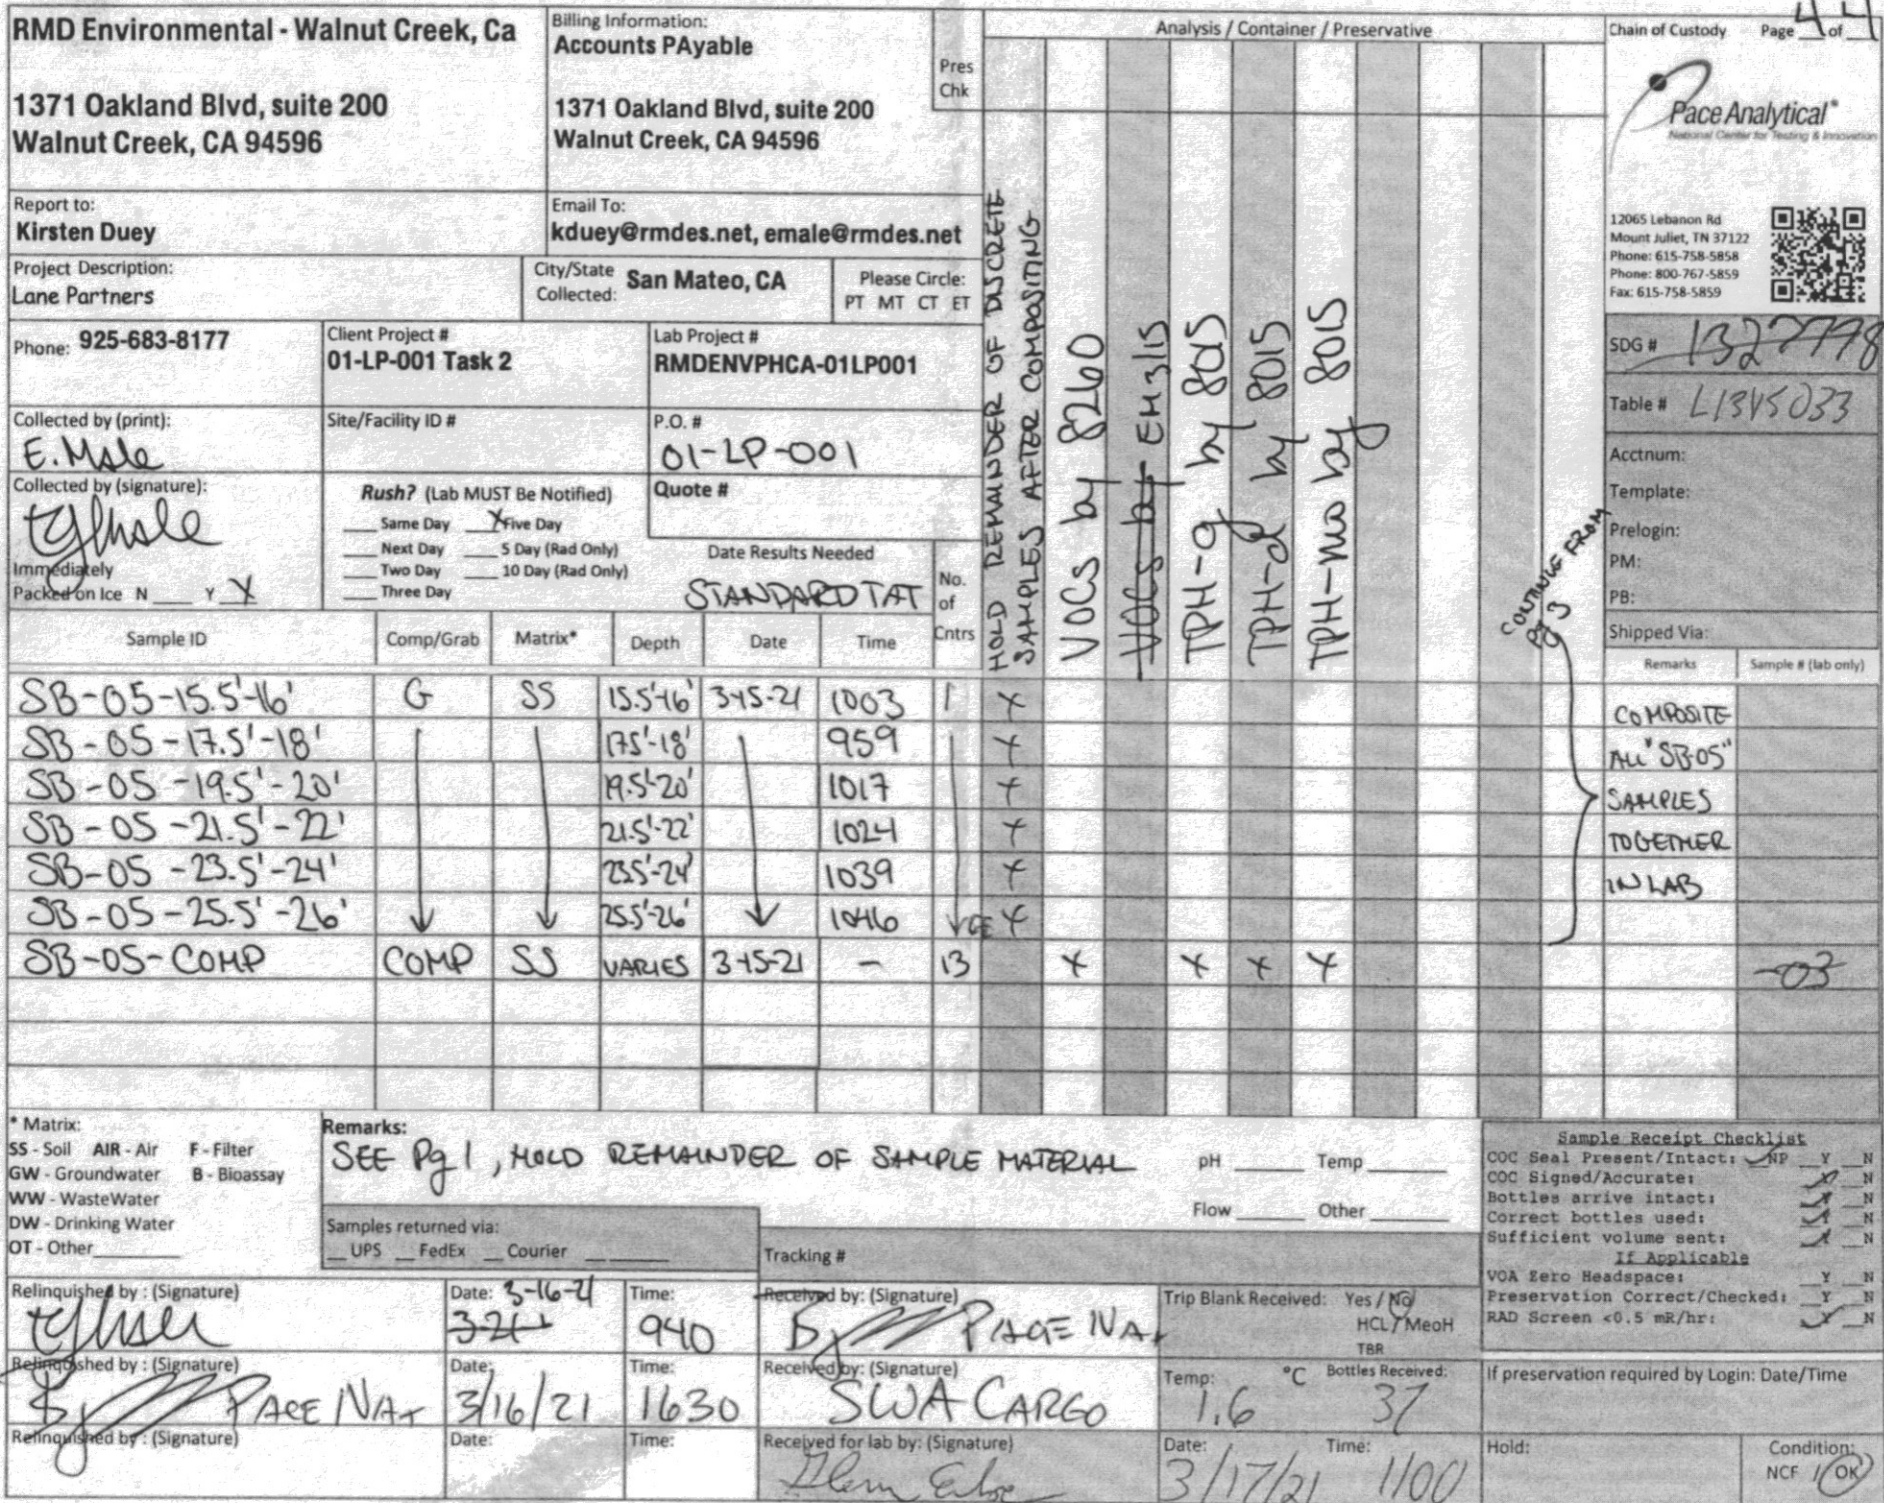 RMD Environmental - Walnut Creek, Ca
1371 Oakland Blvd, suite 200
Walnut Creek, CA 94596
Billing Information:
Accounts PAyable
1371 Oakland Blvd, suite 200
Walnut Creek, CA 94596
Pres
Chk
Analysis / Container / Preservative
Chain of Custody Page 4 of 4
Pace Analytical®
National Center for Testing & Innovation
12065 Lebanon Rd
Mount Juliet, TN 37122
Phone: 615-758-5858
Phone: 800-767-5859
Fax: 615-758-5859
Report to:
Kirsten Duey
Email To:
kduey@rmdes.net, emale@rmdes.net
Project Description:
Lane Partners
City/State
Collected: San Mateo, CA
Please Circle:
PT MT CT ET
Phone: 925-683-8177
Client Project #
01-LP-001 Task 2
Lab Project #
RMDENVPHCA-01LP001
Collected by (print):
E. Male
Site/Facility ID #
P.O. #
01-LP-001
Collected by (signature):
Rush? (Lab MUST Be Notified)
Same Day X Five Day
Next Day 5 Day (Rad Only)
Two Day 10 Day (Rad Only)
Three Day
Quote #
Date Results Needed
STANDARD TAT
Immediately
Packed on Ice N Y X
No.
of
Cntrs
HOLD REMAINDER OF DISCRETE
SAMPLES AFTER COMPOSITING
VOCs by 8260
VOCs by EM 3/15
TPH-g by 8015
TPH-d by 8015
TPH-mo by 8015
CONTINUE FROM
Pg 3
SDG # 1327798
Table # L1345033
Acctnum:
Template:
Prelogin:
PM:
PB:
Shipped Via:
Sample ID Comp/Grab Matrix* Depth Date Time Remarks Sample # (lab only)
SB-05-15.5'-16' G SS 15.5'-16' 3-15-21 1003 1 X
SB-05-17.5'-18' 17.5'-18' 959 X
SB-05-19.5'-20' 19.5'-20' 1017 X
SB-05-21.5'-22' 21.5'-22' 1024 X
SB-05-23.5'-24' 23.5'-24' 1039 X
SB-05-25.5'-26' 25.5'-26' 1046 X
COMPOSITE
ALL "SB-05"
SAMPLES
TOGETHER
IN LAB
SB-05-COMP COMP SS VARIES 3-15-21 - 13 X X X X -03
* Matrix:
SS - Soil AIR - Air F - Filter
GW - Groundwater B - Bioassay
WW - WasteWater
DW - Drinking Water
OT - Other
Remarks:
SEE Pg 1, HOLD REMAINDER OF SAMPLE MATERIAL
pH Temp
Flow Other
Samples returned via:
UPS FedEx Courier
Tracking #
Sample Receipt Checklist
COC Seal Present/Intact: NP Y N
COC Signed/Accurate: Y N
Bottles arrive intact: Y N
Correct bottles used: Y N
Sufficient volume sent: Y N
If Applicable
VOA Zero Headspace: Y N
Preservation Correct/Checked: Y N
RAD Screen <0.5 mR/hr: Y N
Relinquished by : (Signature)
Date: 3-16-21
Time:
940
Received by: (Signature)
PACE NAT
Trip Blank Received: Yes / No
HCL / MeoH
TBR
Relinquished by : (Signature)
PACE NAT
Date:
3/16/21
Time:
1630
Received by: (Signature)
SWA CARGO
Temp: °C
1.6
Bottles Received:
37
If preservation required by Login: Date/Time
Relinquished by : (Signature)
Date:
Time:
Received for lab by: (Signature)
Date:
3/17/21
Time:
1100
Hold:
Condition:
NCF / OK